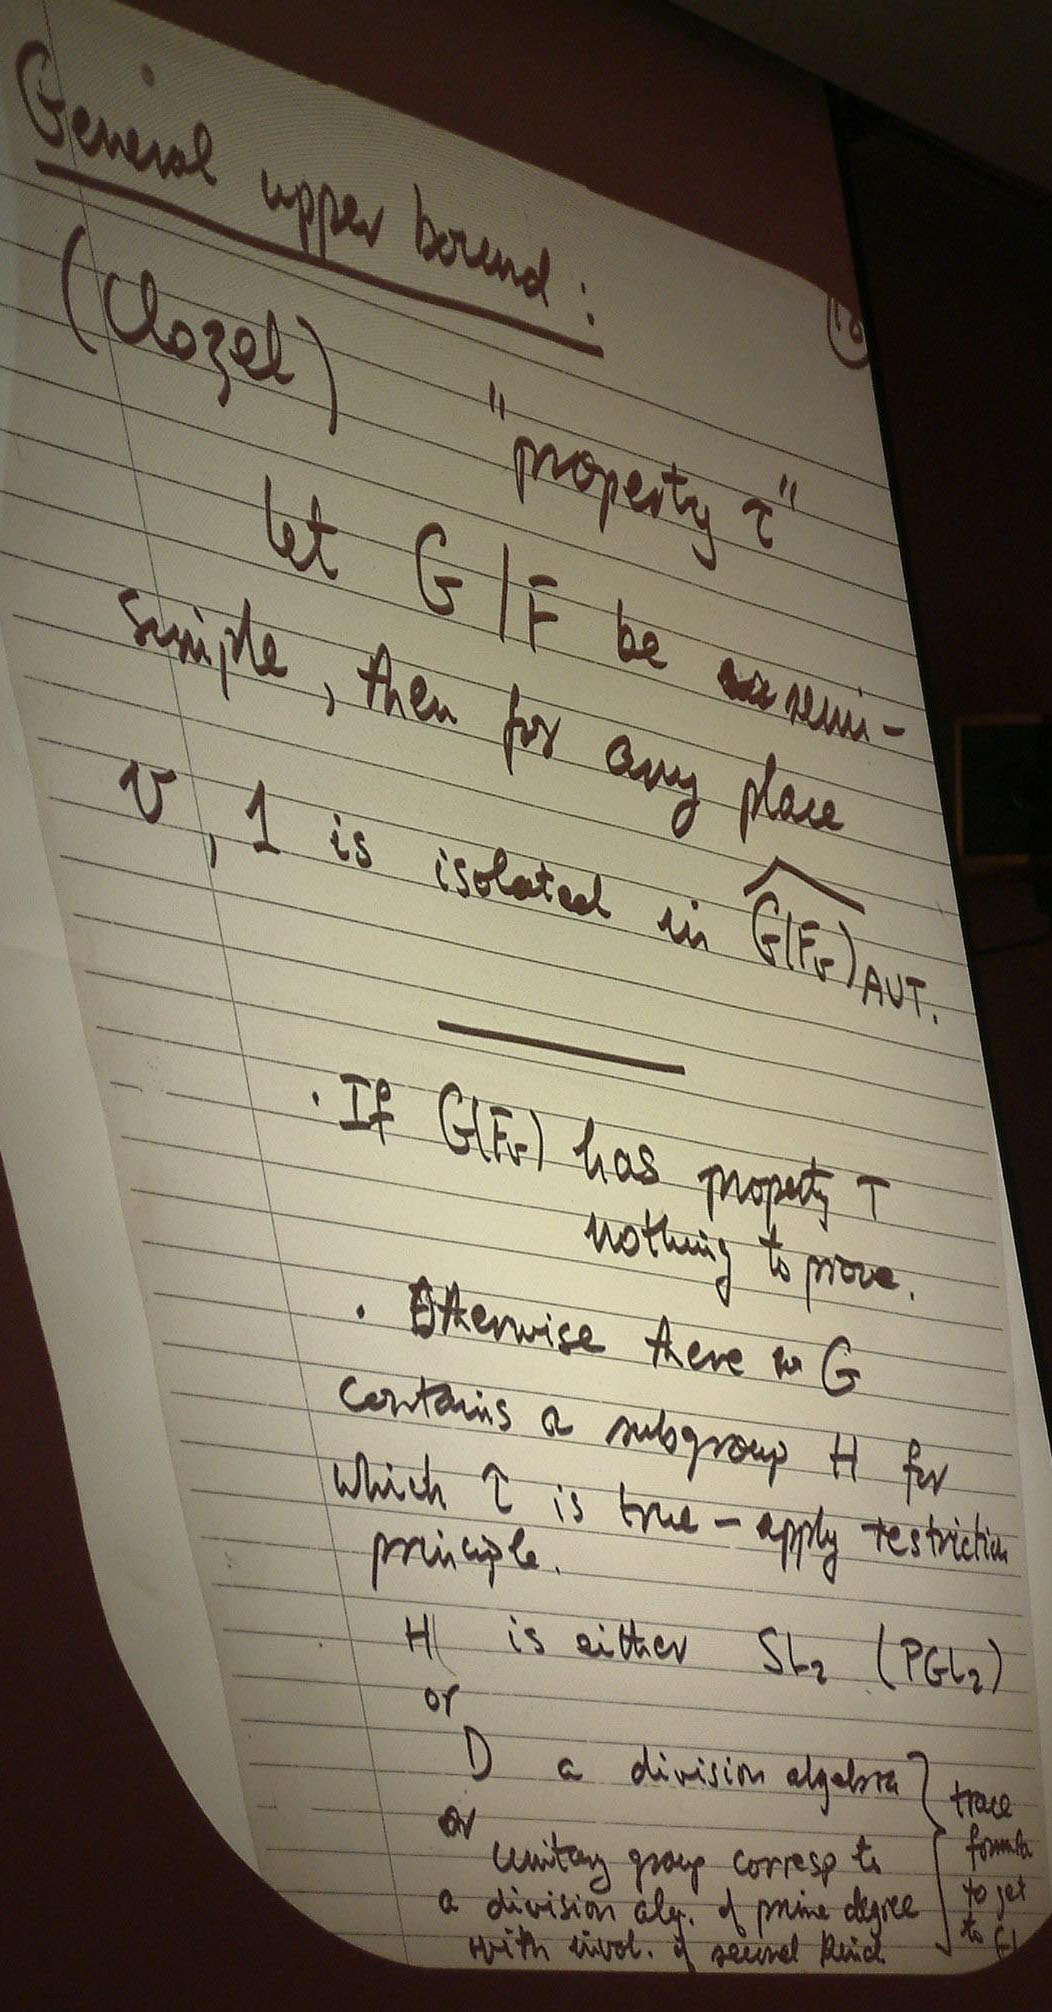 General upper bound:
(Clozel) "property τ"
let G/F be semi-
simple, then for any place
v, 1 is isolated in G(Fv)^AUT.
. If G(Fv) has property T
nothing to prove.
. Otherwise there G
contains a subgroup H for
which τ is true - apply restriction
principle.
H is either SL2 (PGL2)
or
D a division algebra
or
unitary group corresp to
a division alg. of prime degree
with invol. of second kind
trace
formula
to get
to